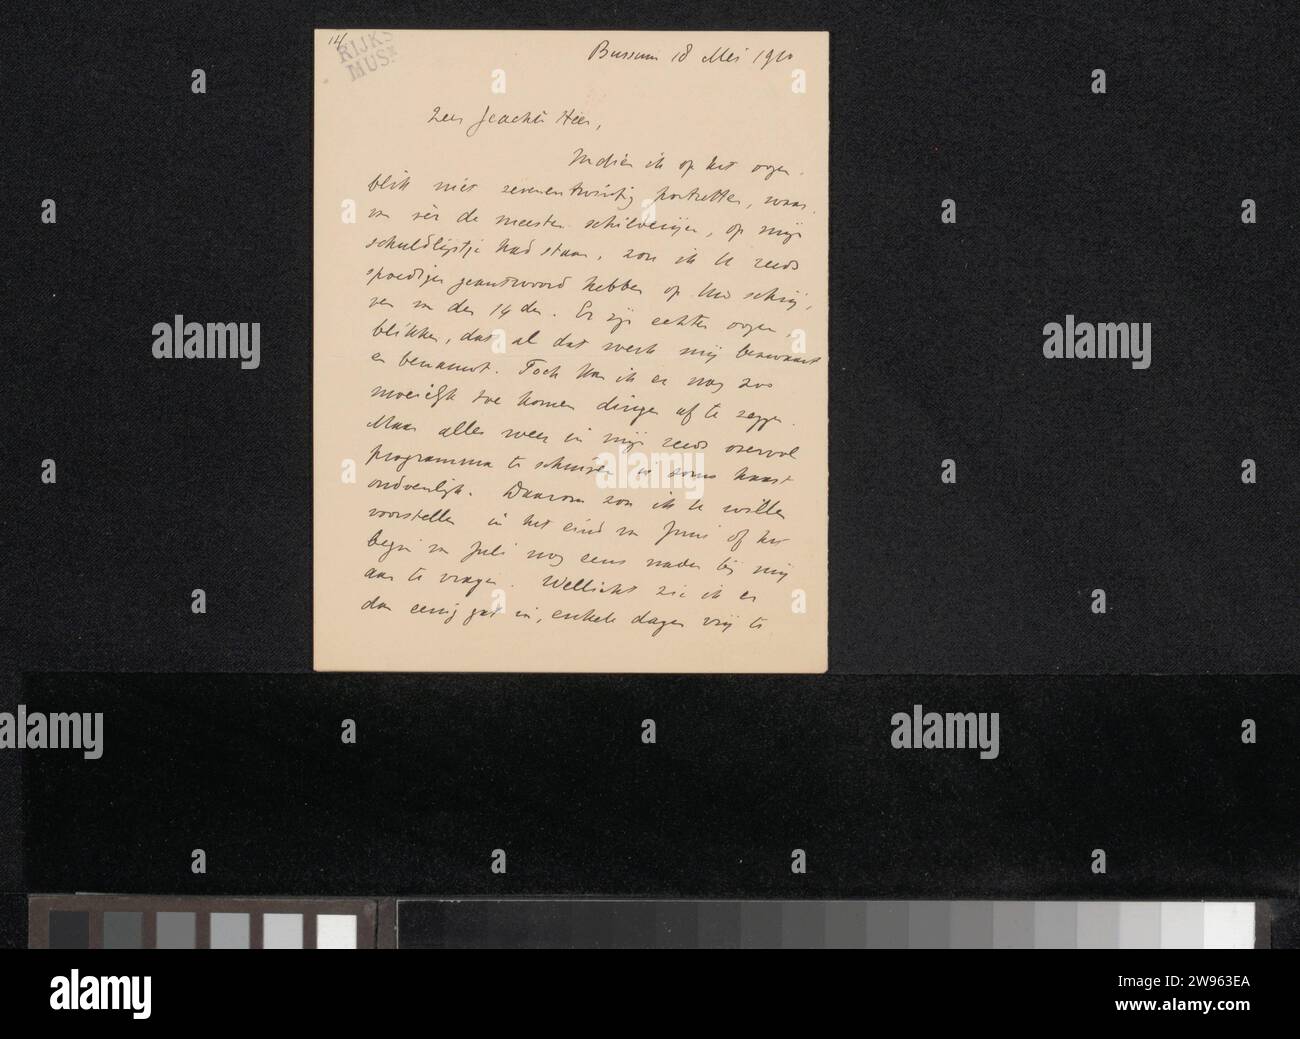 14
RIJKS
MUS
Bussum 18 Mei 1910
Zeer geachte Heer,
Indien ik op het oogen-
blik niet zevenentwintig portretten, waar-
van de meeste schilderijen, op mijn
schuldlijstje had staan, zou ik U reeds
spoediger geantwoord hebben op Uw schrij-
ven van den 14den. Er zijn echter oogen-
blikken, dat al dat werk mij benauwt
en benauwt. Toch kan ik er nog zoo
moeielijk toe komen dingen af te zeggen.
Maar alles weer in mijn reeds overvol
programma te schuiven is soms haast
ondoenlijk. Daarom zou ik U willen
voorstellen in het eind van Juni of het
begin van Juli nog eens nader bij mij
aan te vragen. Wellicht zie ik er
dan eenig gat in, enkele dagen vrij te
alamy
alamy
alamy
alamy
alamy
alamy
a
alamy
Image ID: 2W963EA
www.alamy.com